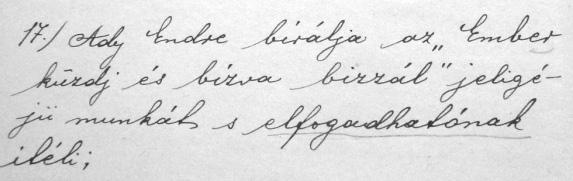 17./ Ady Endre birálja az „Ember
küzdj és bízva bizzál" jeligé-
jü munkát s elfogadhatónak
itéli;